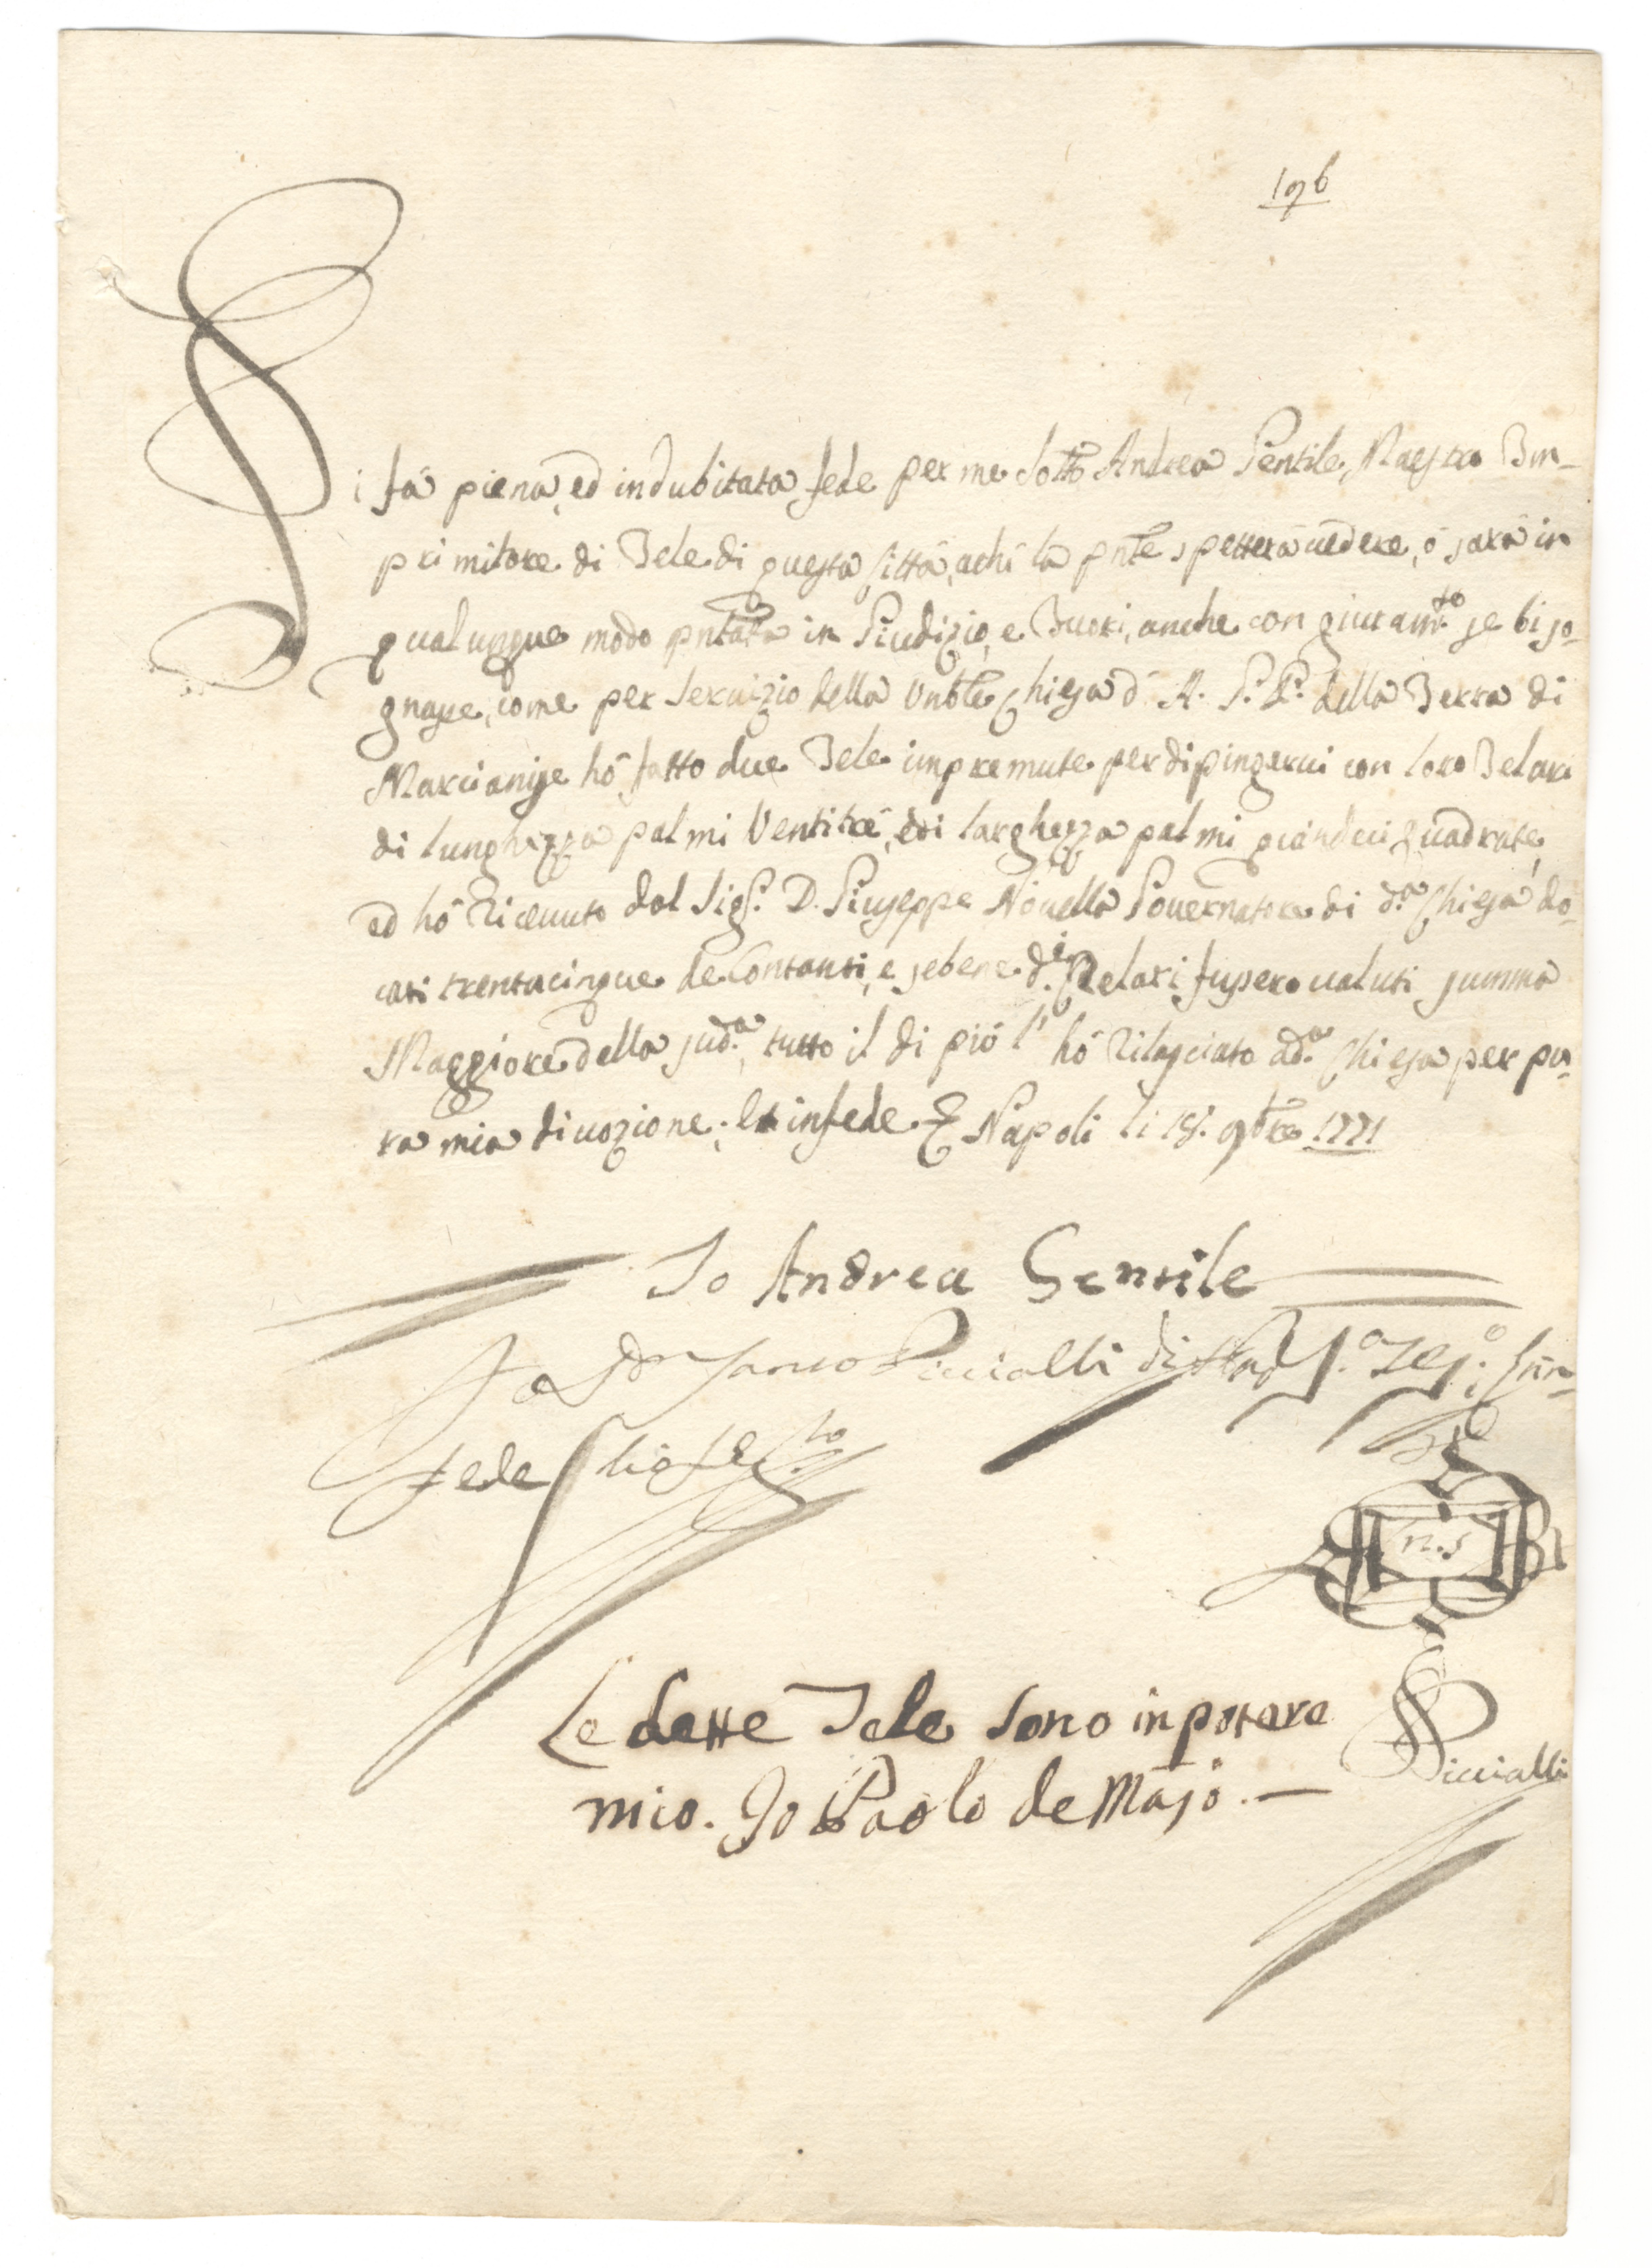 196
Si fà piena, ed indubitata fede per me sotto Andrea Gentile Maestro Im-
primitore di Tele di questa Città, à chi la pnte spetterà vedere, ò sarà in
qualunque modo pntata in Giudizio, e Fuori, anche con giuram.to se biso-
gnasse, come per servizio della Vnble Chiesa d' A. G. P. della Terra di
Marcianise hò fatto due Tele impremute per dipingervi con loro Telari
di lunghezza palmi Ventitrè, e di larghezza palmi quindeci quadrate,
ed hò ricevuto dal Sig.r D. Giuseppe Novella Governatore di d.a Chiesa do-
cati trentacinque de Contanti, e sebene d.i Telari fussero valuti summa
Maggiore della sud.a, tutto il di più l' hò rilasciato a d.a Chiesa per pu-
ra mia divozione; et in fede & Napoli li 18. 9bre 1771
Io Andrea Gentile
Piccialli di Nap.
fede
n.s
Piccialli
Le dette Tele sono in potere
mio. Io Paolo de Majo. —